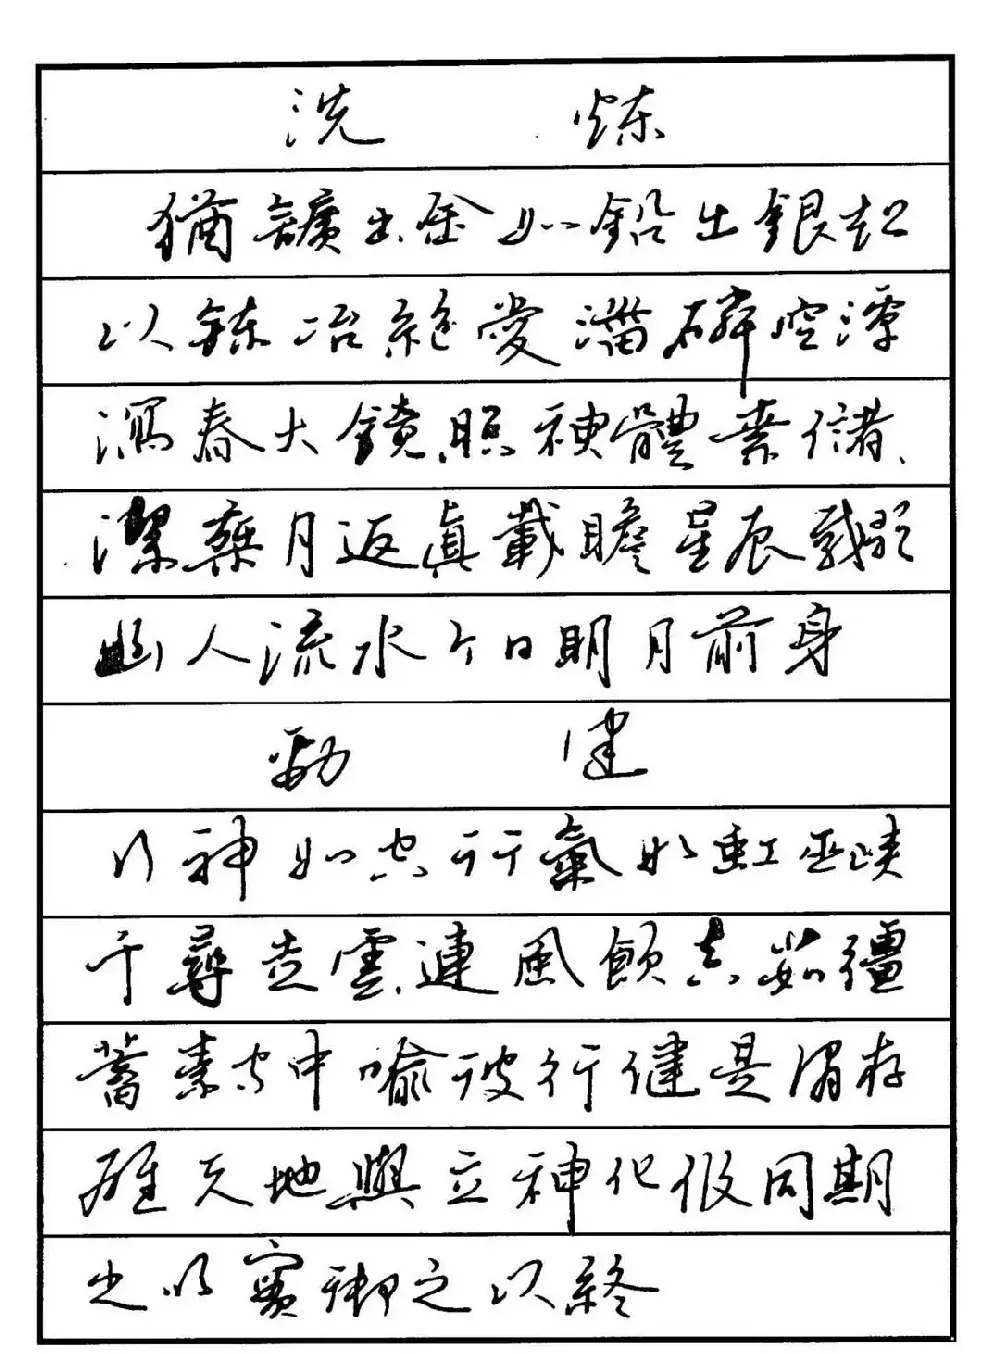 洗 炼
猶鑛出金如鉛出銀超
心鍊冶絕愛淄磷空潭
瀉春古鏡照神體素儲
潔乘月返真載瞻星辰載歌
幽人流水今日明月前身
勁 健
行神如空行氣如虹巫峽
千尋走雲連風飲真茹彊
蓄素守中喻彼行健是謂存
雄天地與立神化攸同期
之以實御之以終